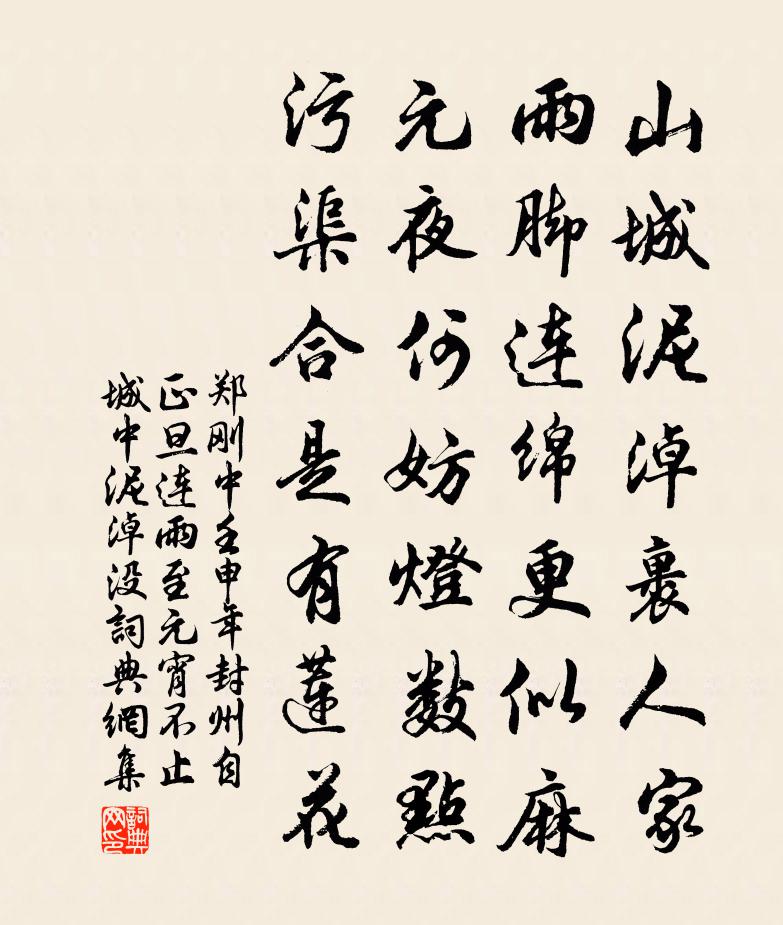 山城泥淖裹人家
雨脚连绵更似麻
元夜何妨燈數點
污渠合是有蓮花
郑刚中壬申年封州自
正旦连雨至元宵不止
城中泥淖没詞典網集
詞典
网印